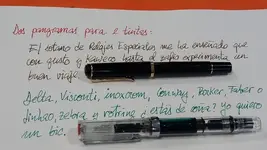 Dos pangramas para 2 tintas:
El sótano de Relojes Especiales me ha enseñado que
con gusto y hasta el experimenta un
buen viaje.
Delta, Visconti, inoxcrom, Conway, Parker, Faber o
zebra y rotring ¿estás de coña? Yo quiero
un bic.